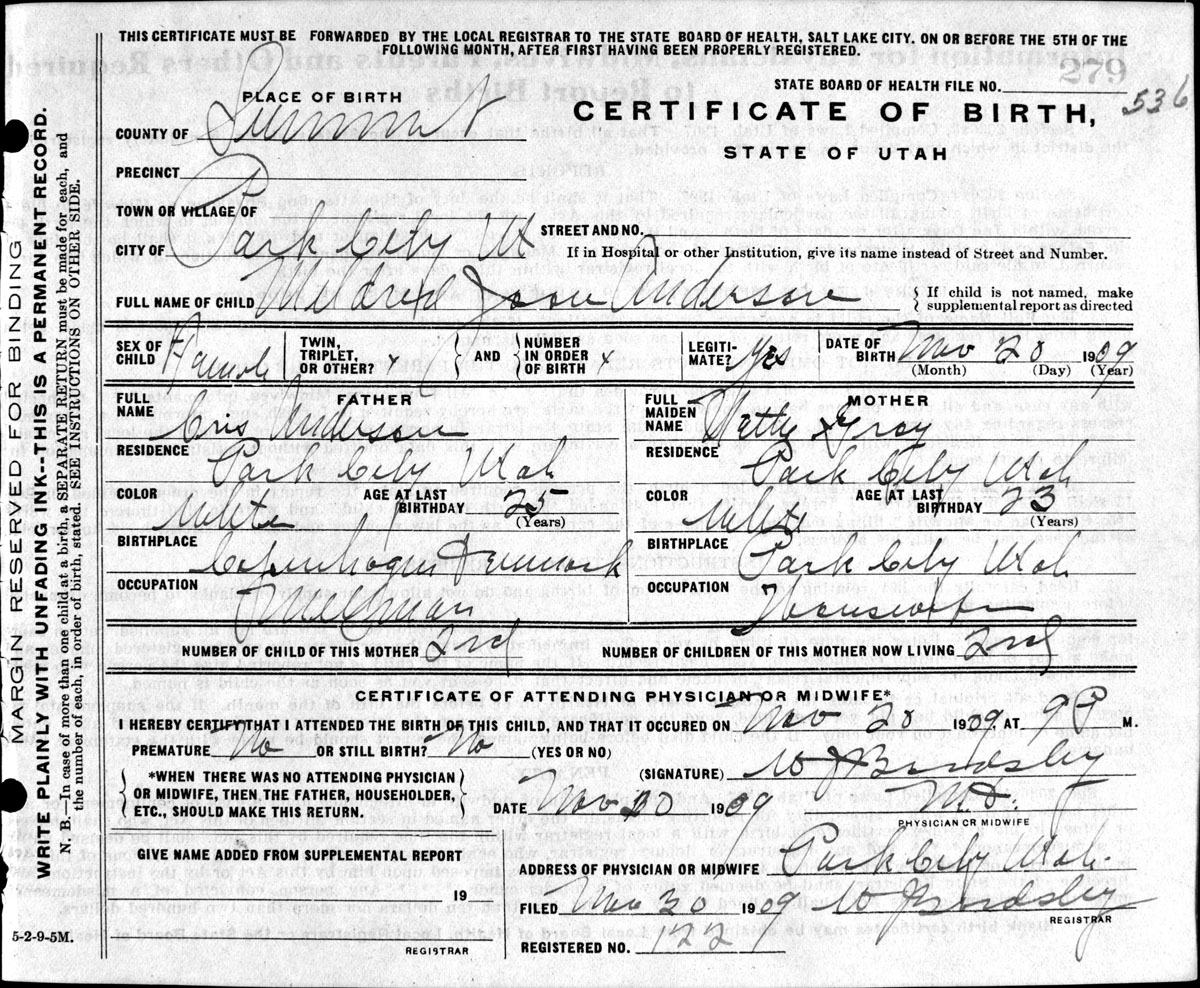 THIS CERTIFICATE MUST BE FORWARDED BY THE LOCAL REGISTRAR TO THE STATE BOARD OF HEALTH, SALT LAKE CITY, ON OR BEFORE THE 5TH OF THE
FOLLOWING MONTH, AFTER FIRST HAVING BEEN PROPERLY REGISTERED.
279
STATE BOARD OF HEALTH FILE NO.
536
PLACE OF BIRTH
CERTIFICATE OF BIRTH,
STATE OF UTAH
COUNTY OF Summit
PRECINCT
TOWN OR VILLAGE OF
STREET AND NO.
CITY OF Park City Ut
If in Hospital or other Institution, give its name instead of Street and Number.
FULL NAME OF CHILD Mildred Anderson
{ If child is not named, make
supplemental report as directed
SEX OF CHILD Female
TWIN, TRIPLET, OR OTHER? x
AND
NUMBER IN ORDER OF BIRTH x
LEGITI-MATE? Yes
DATE OF BIRTH Nov 20 1909
(Month) (Day) (Year)
FATHER
FULL NAME Cris Anderson
RESIDENCE Park City Utah
COLOR White
AGE AT LAST BIRTHDAY 25
(Years)
BIRTHPLACE Copenhagen Denmark
OCCUPATION
MOTHER
FULL MAIDEN NAME Gray
RESIDENCE Park City Utah
COLOR White
AGE AT LAST BIRTHDAY 23
(Years)
BIRTHPLACE Park City Utah
OCCUPATION Housewife
NUMBER OF CHILD OF THIS MOTHER 2nd
NUMBER OF CHILDREN OF THIS MOTHER NOW LIVING 2nd
CERTIFICATE OF ATTENDING PHYSICIAN OR MIDWIFE*
I HEREBY CERTIFY THAT I ATTENDED THE BIRTH OF THIS CHILD, AND THAT IT OCCURED ON Nov 20 1909 AT 9 P M.
PREMATURE No OR STILL BIRTH? No (YES OR NO)
*WHEN THERE WAS NO ATTENDING PHYSICIAN
OR MIDWIFE, THEN THE FATHER, HOUSEHOLDER,
ETC., SHOULD MAKE THIS RETURN.
(SIGNATURE) W J Bardsley
M.D.
PHYSICIAN OR MIDWIFE
DATE Nov 20 1909
GIVE NAME ADDED FROM SUPPLEMENTAL REPORT
19
REGISTRAR
ADDRESS OF PHYSICIAN OR MIDWIFE Park City Utah.
FILED Nov 20 1909 W J Bardsley
REGISTRAR
REGISTERED NO. 122
5-2-9-5M.
MARGIN RESERVED FOR BINDING
WRITE PLAINLY WITH UNFADING INK--THIS IS A PERMANENT RECORD.
N. B.—In case of more than one child at a birth, a SEPARATE RETURN must be made for each, and
the number of each, in order of birth, stated. SEE INSTRUCTIONS ON OTHER SIDE.